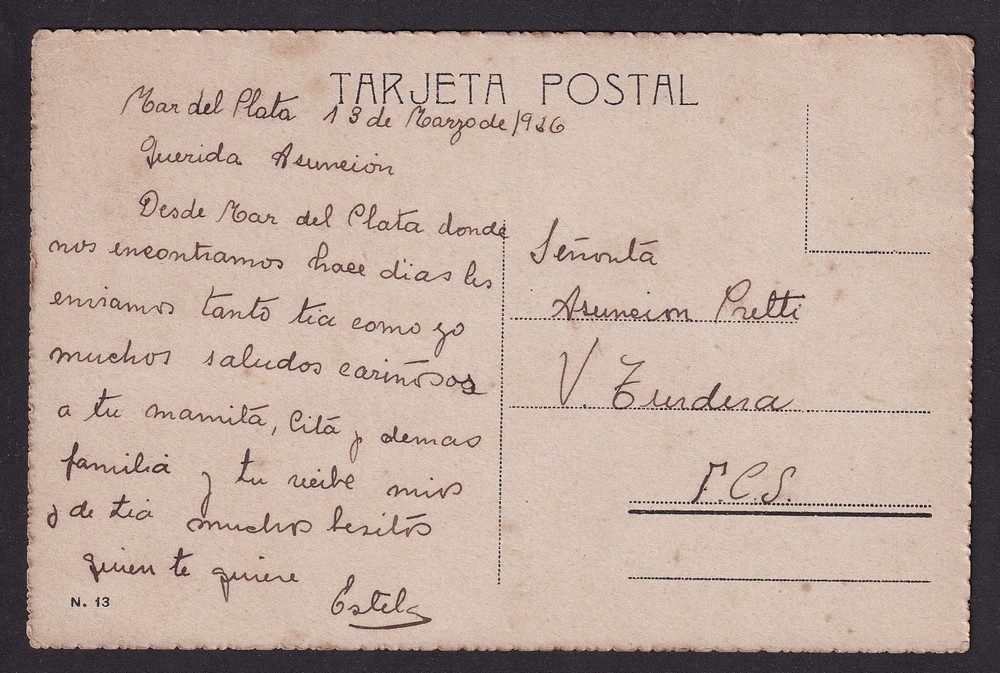 TARJETA POSTAL
Mar del Plata 13 de Marzo de 1926
Querida Asuncion
Desde Mar del Plata donde
nos encontramos hace dias les
enviamos tanto tia como yo
muchos saludos cariñosos
a tu mamita, Cita y demas
familia y tu recibe mios
y de tia muchos besitos
quien te quiere
Estela
N. 13
Señorita
Asuncion Pretti
V. Turdera
F.C.S.